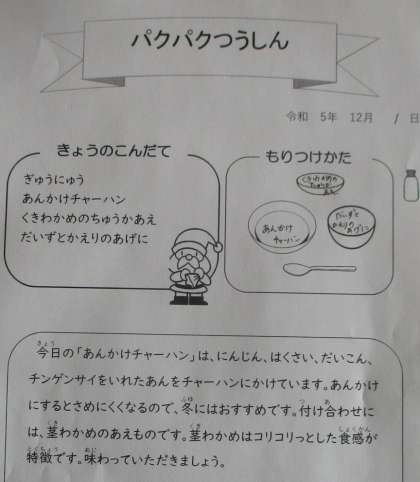 パクパクつうしん
令和 5年 12月 / 日
きょうのこんだて
ぎゅうにゅう
あんかけチャーハン
くきわかめのちゅうかあえ
だいずとかえりのあげに
もりつけかた
くきわかめの
ちゅうか
あえ
あんかけ
チャーハン
だいずと
かえりの
あげに
今日の「あんかけチャーハン」は、にんじん、はくさい、だいこん、
チンゲンサイをいれたあんをチャーハンにかけています。あんかけ
にするとさめにくくなるので、冬にはおすすめです。付け合わせに
は、茎わかめのあえものです。茎わかめはコリコリっとした食感が
特徴です。味わっていただきましょう。